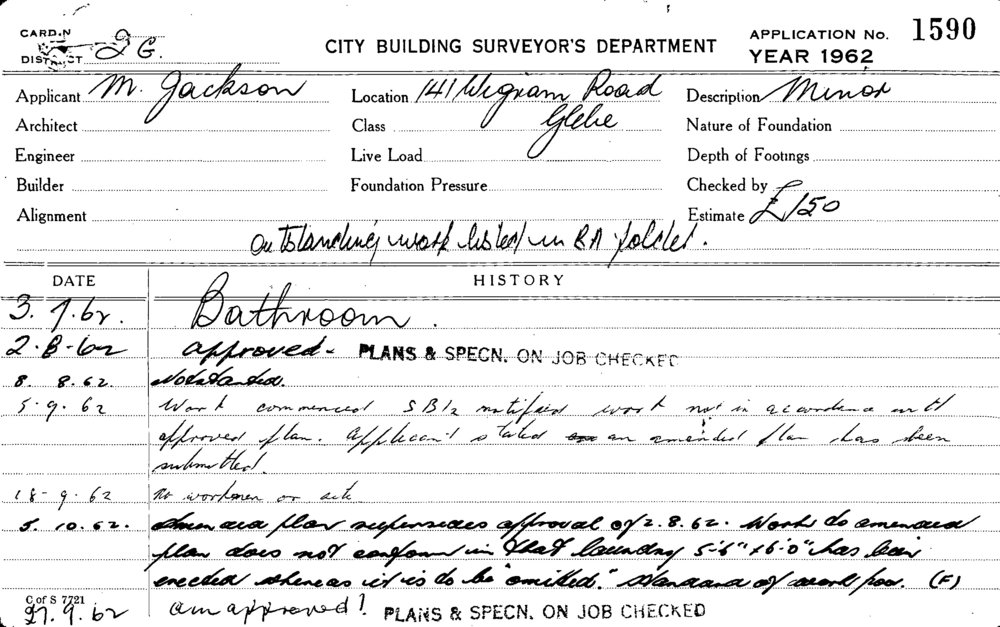 CARD.N
DISTRICT 2 G.
CITY BUILDING SURVEYOR'S DEPARTMENT
APPLICATION No. 1590
YEAR 1962
Applicant M. Jackson
Location 141 Wigram Road
Description Minor
Architect
Class Glebe
Nature of Foundation
Engineer
Live Load
Depth of Footings
Builder
Foundation Pressure
Checked by
Alignment
Estimate £150
outstanding work listed in BA folder.
DATE HISTORY
3. 7. 62. Bathroom.
2-8-62 approved- PLANS & SPECN. ON JOB CHECKED
8. 8. 62. Not started.
5. 9. 62 Work commenced SB12 notified work not in accordance with
approved plan. Applicant stated an amended plan has been
submitted.
18-9.62 No workmen on site
5. 10. 62. Amended plan supersedes approval of 2.8.62. Work to amended
plan does not conform in that laundry 5'-6" x 6'-0" has been
erected whereas it is to be "omitted." Standard of work poor. (F)
C of S 7721
27.9.62 am approved! PLANS & SPECN. ON JOB CHECKED